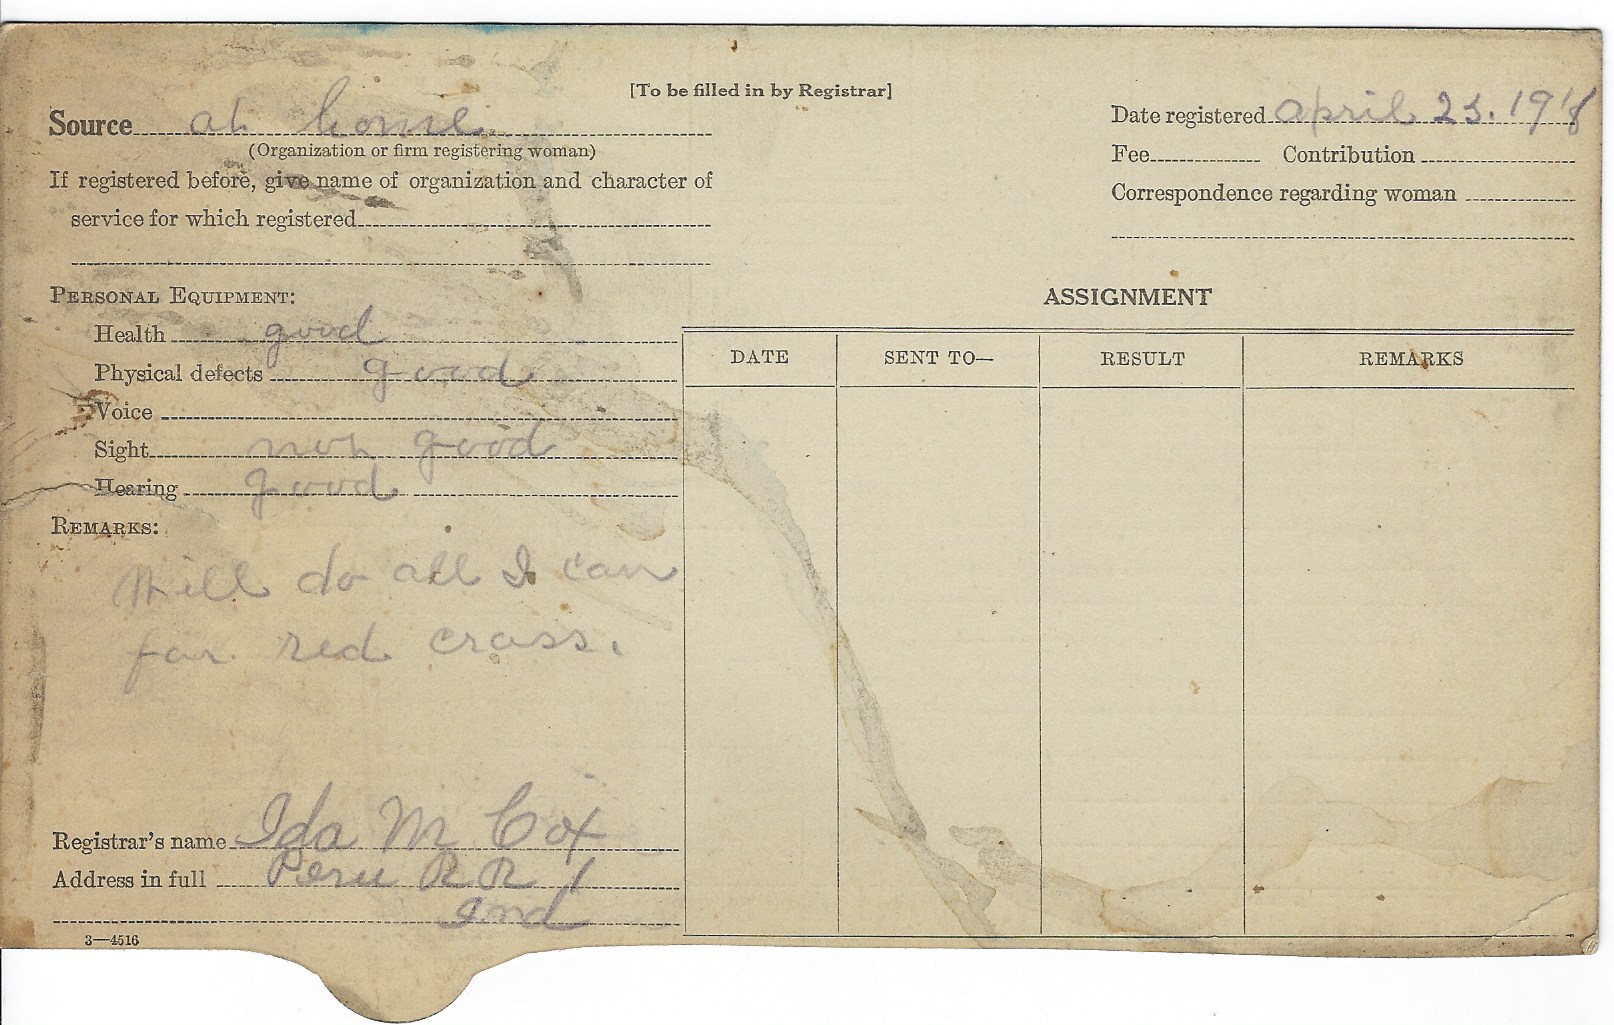 [To be filled in by Registrar]
Source at home
(Organization or firm registering woman)
If registered before, give name of organization and character of
service for which registered
Date registered April 23. 1918
Fee Contribution
Correspondence regarding woman
PERSONAL EQUIPMENT:
Health good
Physical defects good
Voice
Sight not good
Hearing good
REMARKS:
Will do all I can
for red cross.
Registrar's name Ida M Cox
Address in full Peru R R 1
Ind
3—4516
ASSIGNMENT
DATE SENT TO— RESULT REMARKS